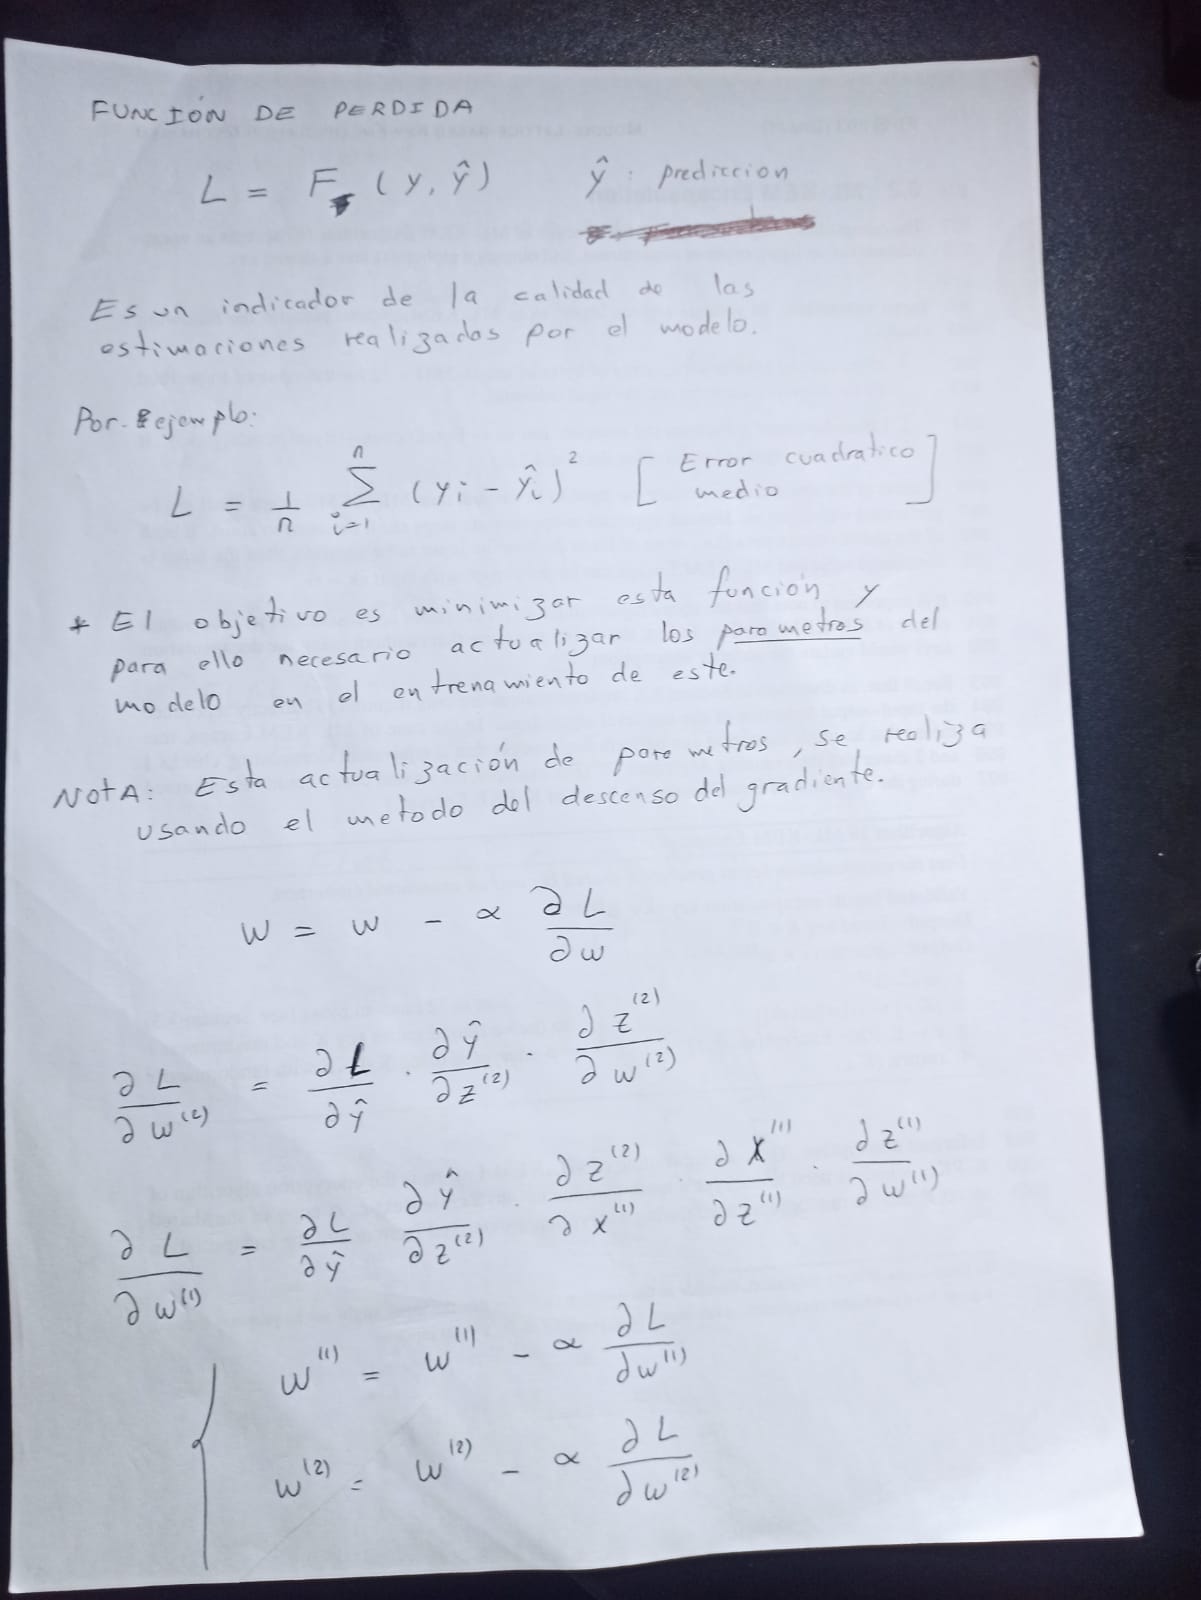 FUNCIÓN DE PERDIDA
L = F (y, ŷ)   ŷ : prediccion
Es un indicador de la calidad de las
estimaciones realizadas por el modelo.
Por ejemplo:
L = 1/n ∑_{i=1}^{n} (yi - ŷi)²   [Error cuadratico
medio]
* El objetivo es minimizar esta función y
para ello necesario actualizar los parametros del
modelo en el entrenamiento de este.
NOTA: Esta actualización de parametros, se realiza
usando el metodo del descenso del gradiente.
w = w - α ∂L/∂w
∂L/∂w⁽²⁾ = ∂L/∂ŷ · ∂ŷ/∂z⁽²⁾ · ∂z⁽²⁾/∂w⁽²⁾
∂L/∂w⁽¹⁾ = ∂L/∂ŷ ∂ŷ/∂z⁽²⁾ · ∂z⁽²⁾/∂x⁽¹⁾ · ∂x⁽¹⁾/∂z⁽¹⁾ · ∂z⁽¹⁾/∂w⁽¹⁾
w⁽¹⁾ = w⁽¹⁾ - α ∂L/∂w⁽¹⁾
w⁽²⁾ = w⁽²⁾ - α ∂L/∂w⁽²⁾